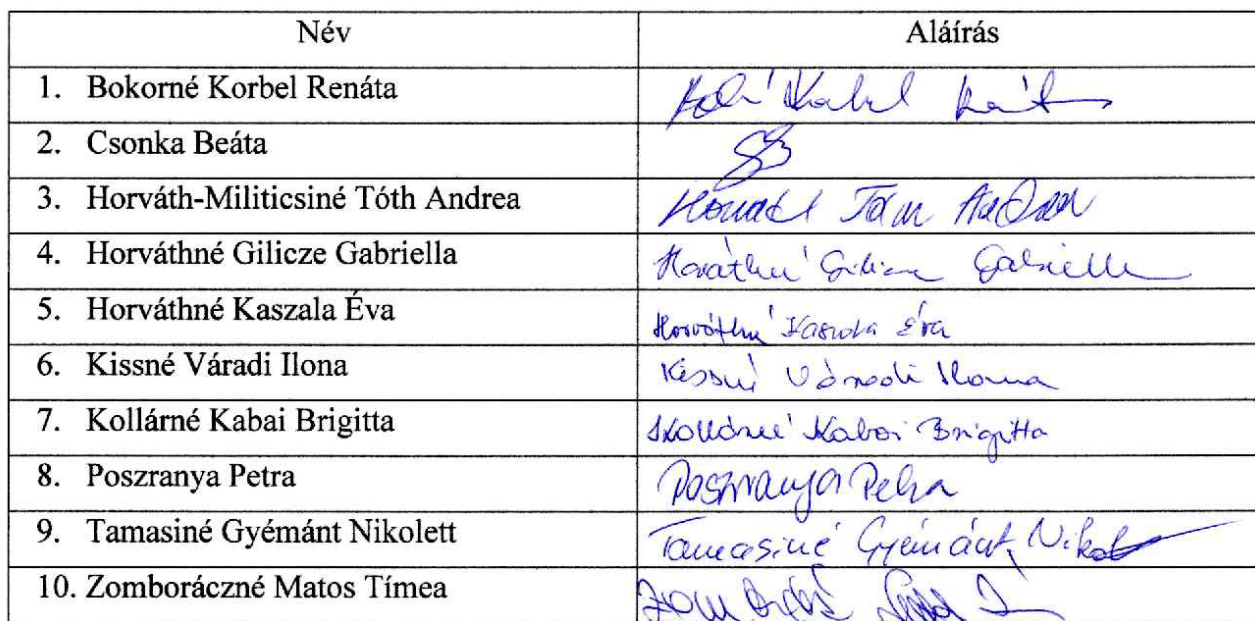 Név Aláírás
1. Bokorné Korbel Renáta
2. Csonka Beáta
3. Horváth-Militicsiné Tóth Andrea
4. Horváthné Gilicze Gabriella Horváthné Gilicze Gabriella
5. Horváthné Kaszala Éva Horváthné Kaszala Éva
6. Kissné Váradi Ilona Kissné Váradi Ilona
7. Kollárné Kabai Brigitta Kollárné Kabai Brigitta
8. Poszranya Petra Poszranya Petra
9. Tamasiné Gyémánt Nikolett Tamasiné Gyémánt
10. Zomboráczné Matos Tímea